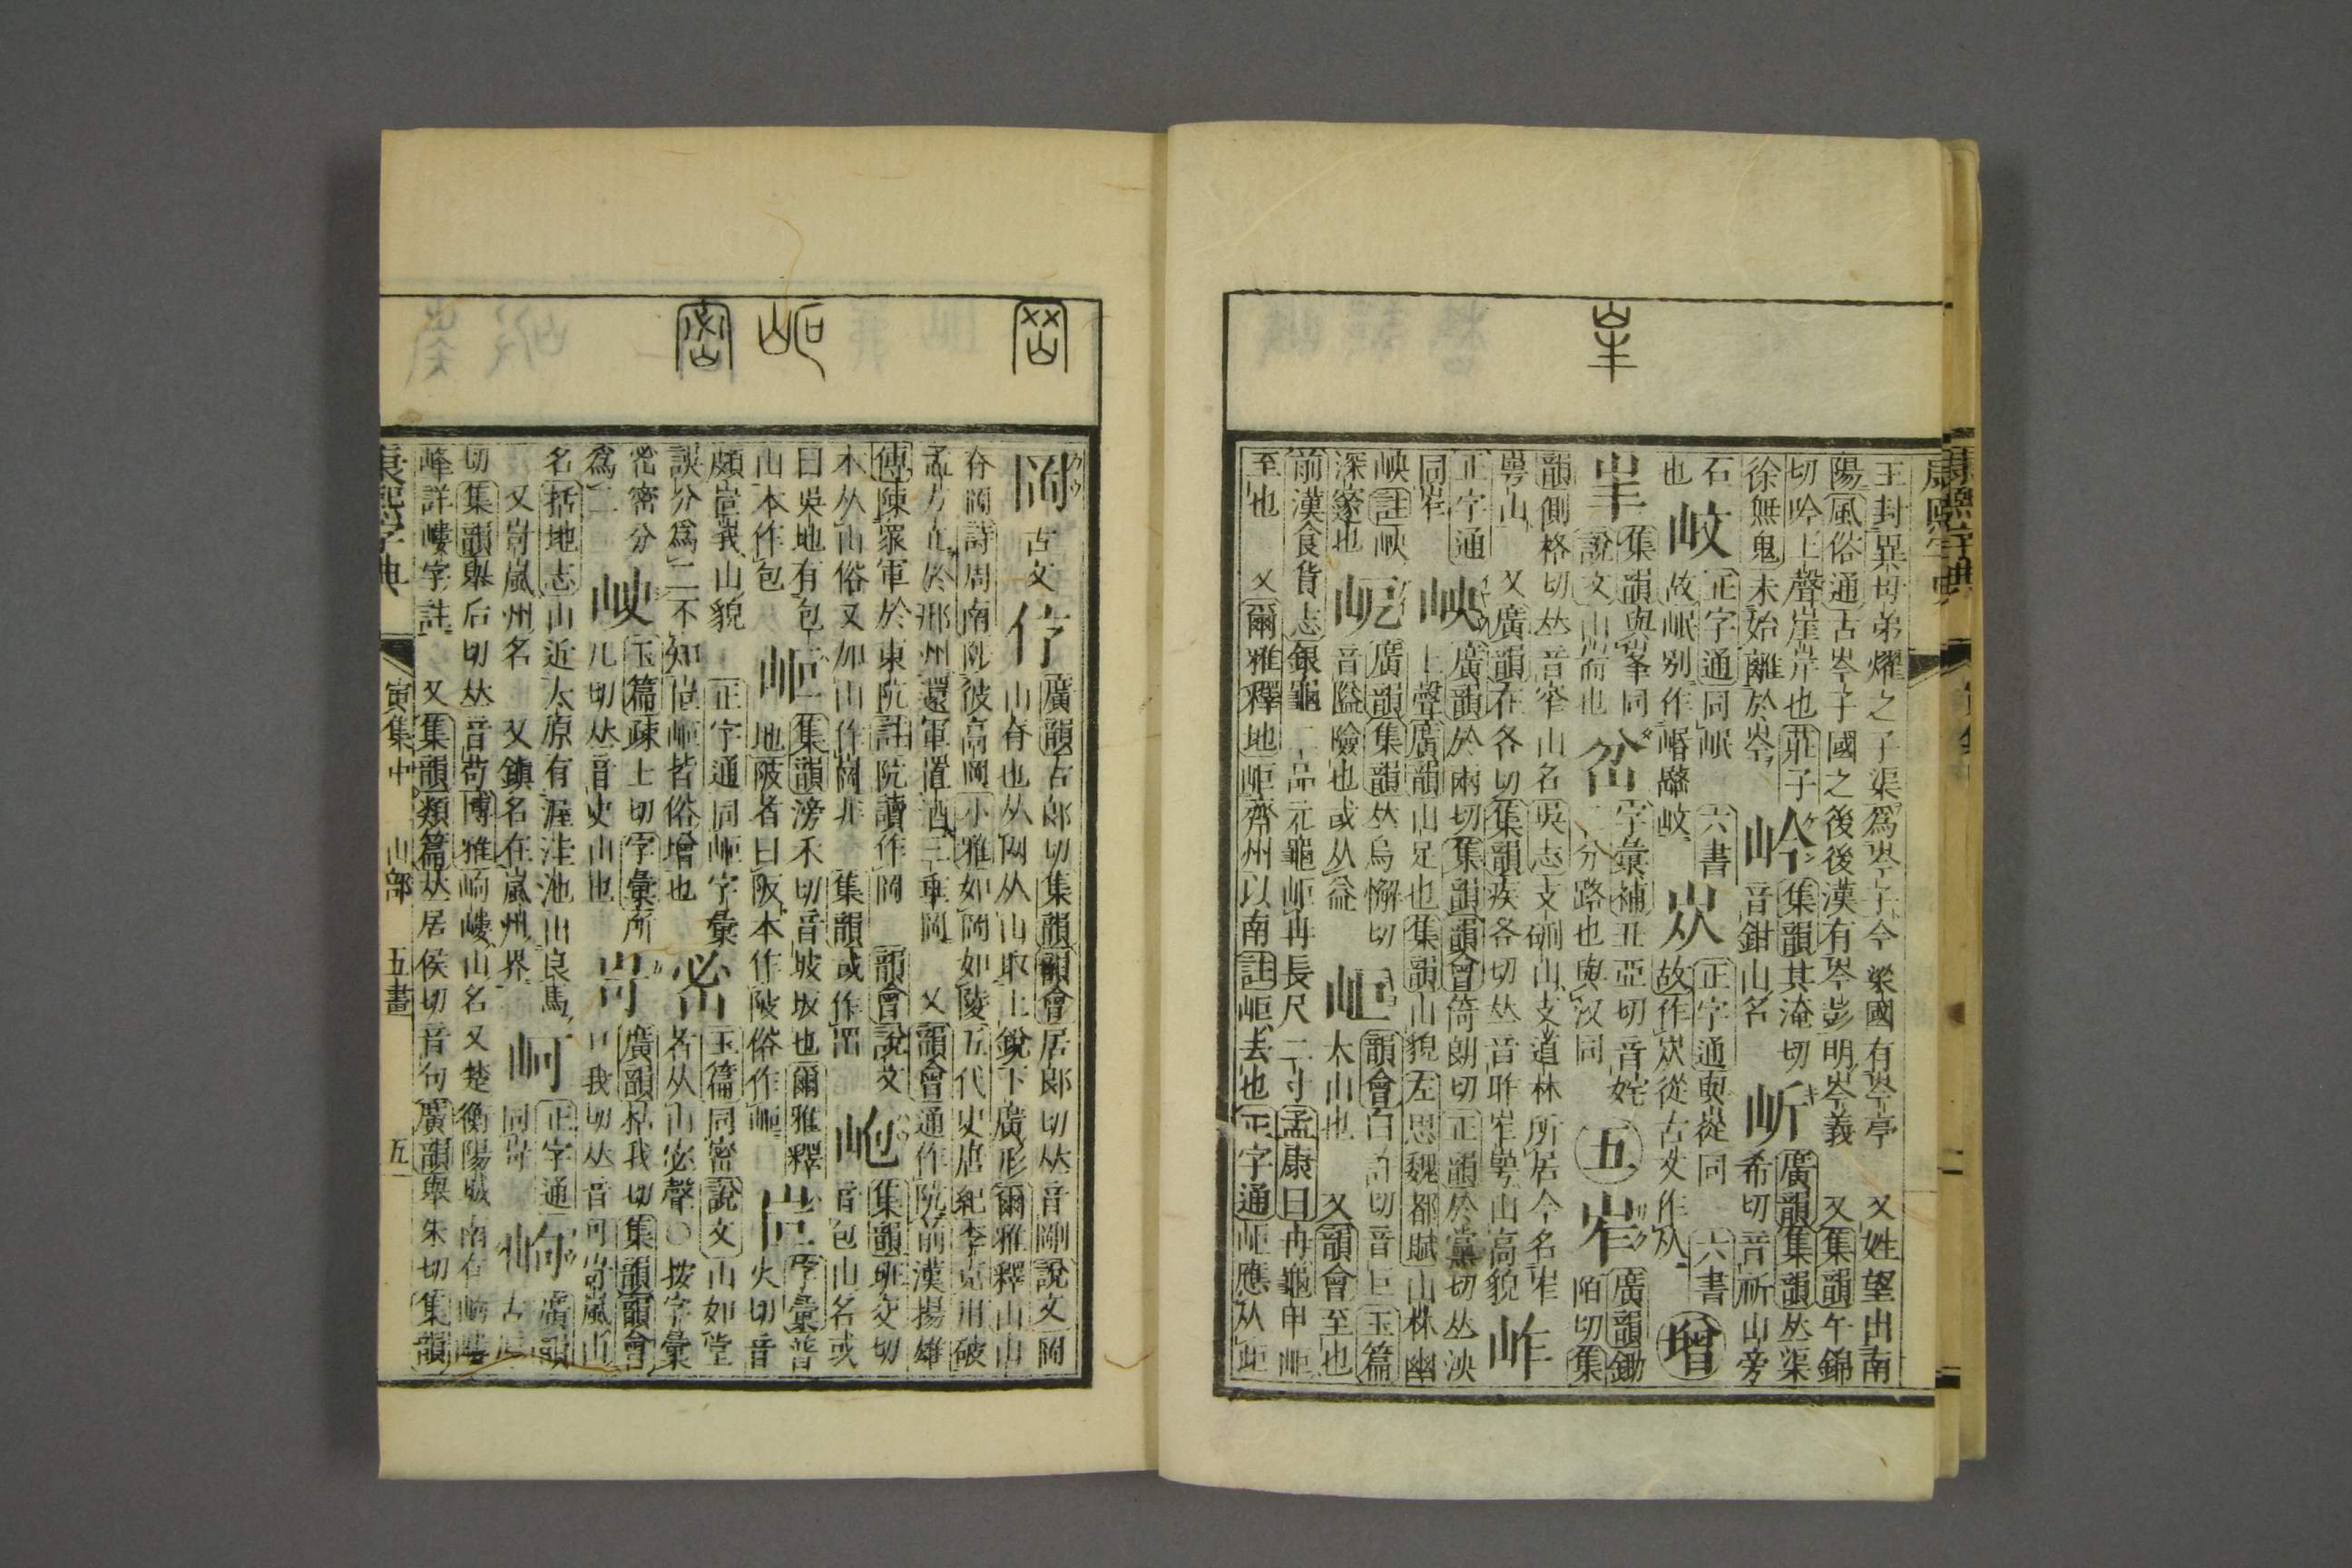 峷
王封異母弟燿之子渠爲岑子今梁國有岑亭 又姓望出南
陽風俗通古岑子國之後後漢有岑彭明岑義 又集韻午錦
切吟上聲崖岸也莊子
徐無鬼未始離於岑
岒
集韻其淹切
音鉗山名
岓
廣韻集韻𠀤渠
希切音祈山旁
石
也
㟭
正字通同岷
故岷别作㟭
六書
㟴
正字通與從同 六書
故作㟴從古文作从
增
峷
集韻與峯同
說文山耑也
岔
字彙補丑亞切音姹
三分路也與汊同
五
岝
廣韻鋤
陌切集
韻側格切𠀤音窄山名吳志支硎山支道林所居今名岝
㟧山 又廣韻在各切集韻疾各切𠀤音昨岝㟧山高貌
岞
正字通
同岝
岟
廣韻於兩切集韻韻會倚朗切正韻於黨切𠀤泱
上聲廣韻山足也集韻山貌左思魏都賦山林幽
岟註岟
深邃也
㞾
廣韻集韻𠀤烏懈切
音隘險也或从益
岠
韻會臼許切音巨玉篇
大山也 又韻會至也
前漢食貨志銀龜二品元龜岠冉長尺二寸孟康曰冉龜甲岠
至也 又爾雅釋地岠齊州以南註岠去也正字通岠應从距
康熙字典
岡
古文
廣韻古郎切集韻韻會居郎切𠀤音剛說文岡
山脊也从网从山取上銳下廣形爾雅釋山山
脊岡詩周南陟彼高岡小雅如岡如陵五代史唐紀李克用破
孟方立於邢州還軍置酒三垂岡 又韻會通作阬前漢揚雄
傳陳衆軍於東阬註阬讀作岡 韻會說文
本从山俗又加山作崗非 集韻或作𡶩
岮
集韻班交切
音包山名或
曰吳地有包
山本作包
岥
集韻滂禾切音坡坂也爾雅釋
地陂者曰阪本作陂俗作岥
字彙普
火切音
頗 山貌
正字通同岠字彙
誤分爲二不知 皆俗增也
岊
玉篇同密說文山如堂
者从山宓聲○按字彙
密密分
爲二
㟓
玉篇疎士切字彙所
几切𠀤音史山也
岢
廣韻枯我切集韻韻會
口我切𠀤音可岢嵐山
名括地志山近太原有渥洼池出良馬
又岢嵐州名 又鎮名在嵐州界
岢
正字通
同岢
岣
廣韻
古厚
切集韻舉后切𠀤音苟博雅岣嶁山名又楚衡陽城南有岣嶁
峰詳嶁字註 又集韻類篇𠀤居侯切音句廣韻舉朱切集韻
康熙字典 寅集中 山部 五畫 五